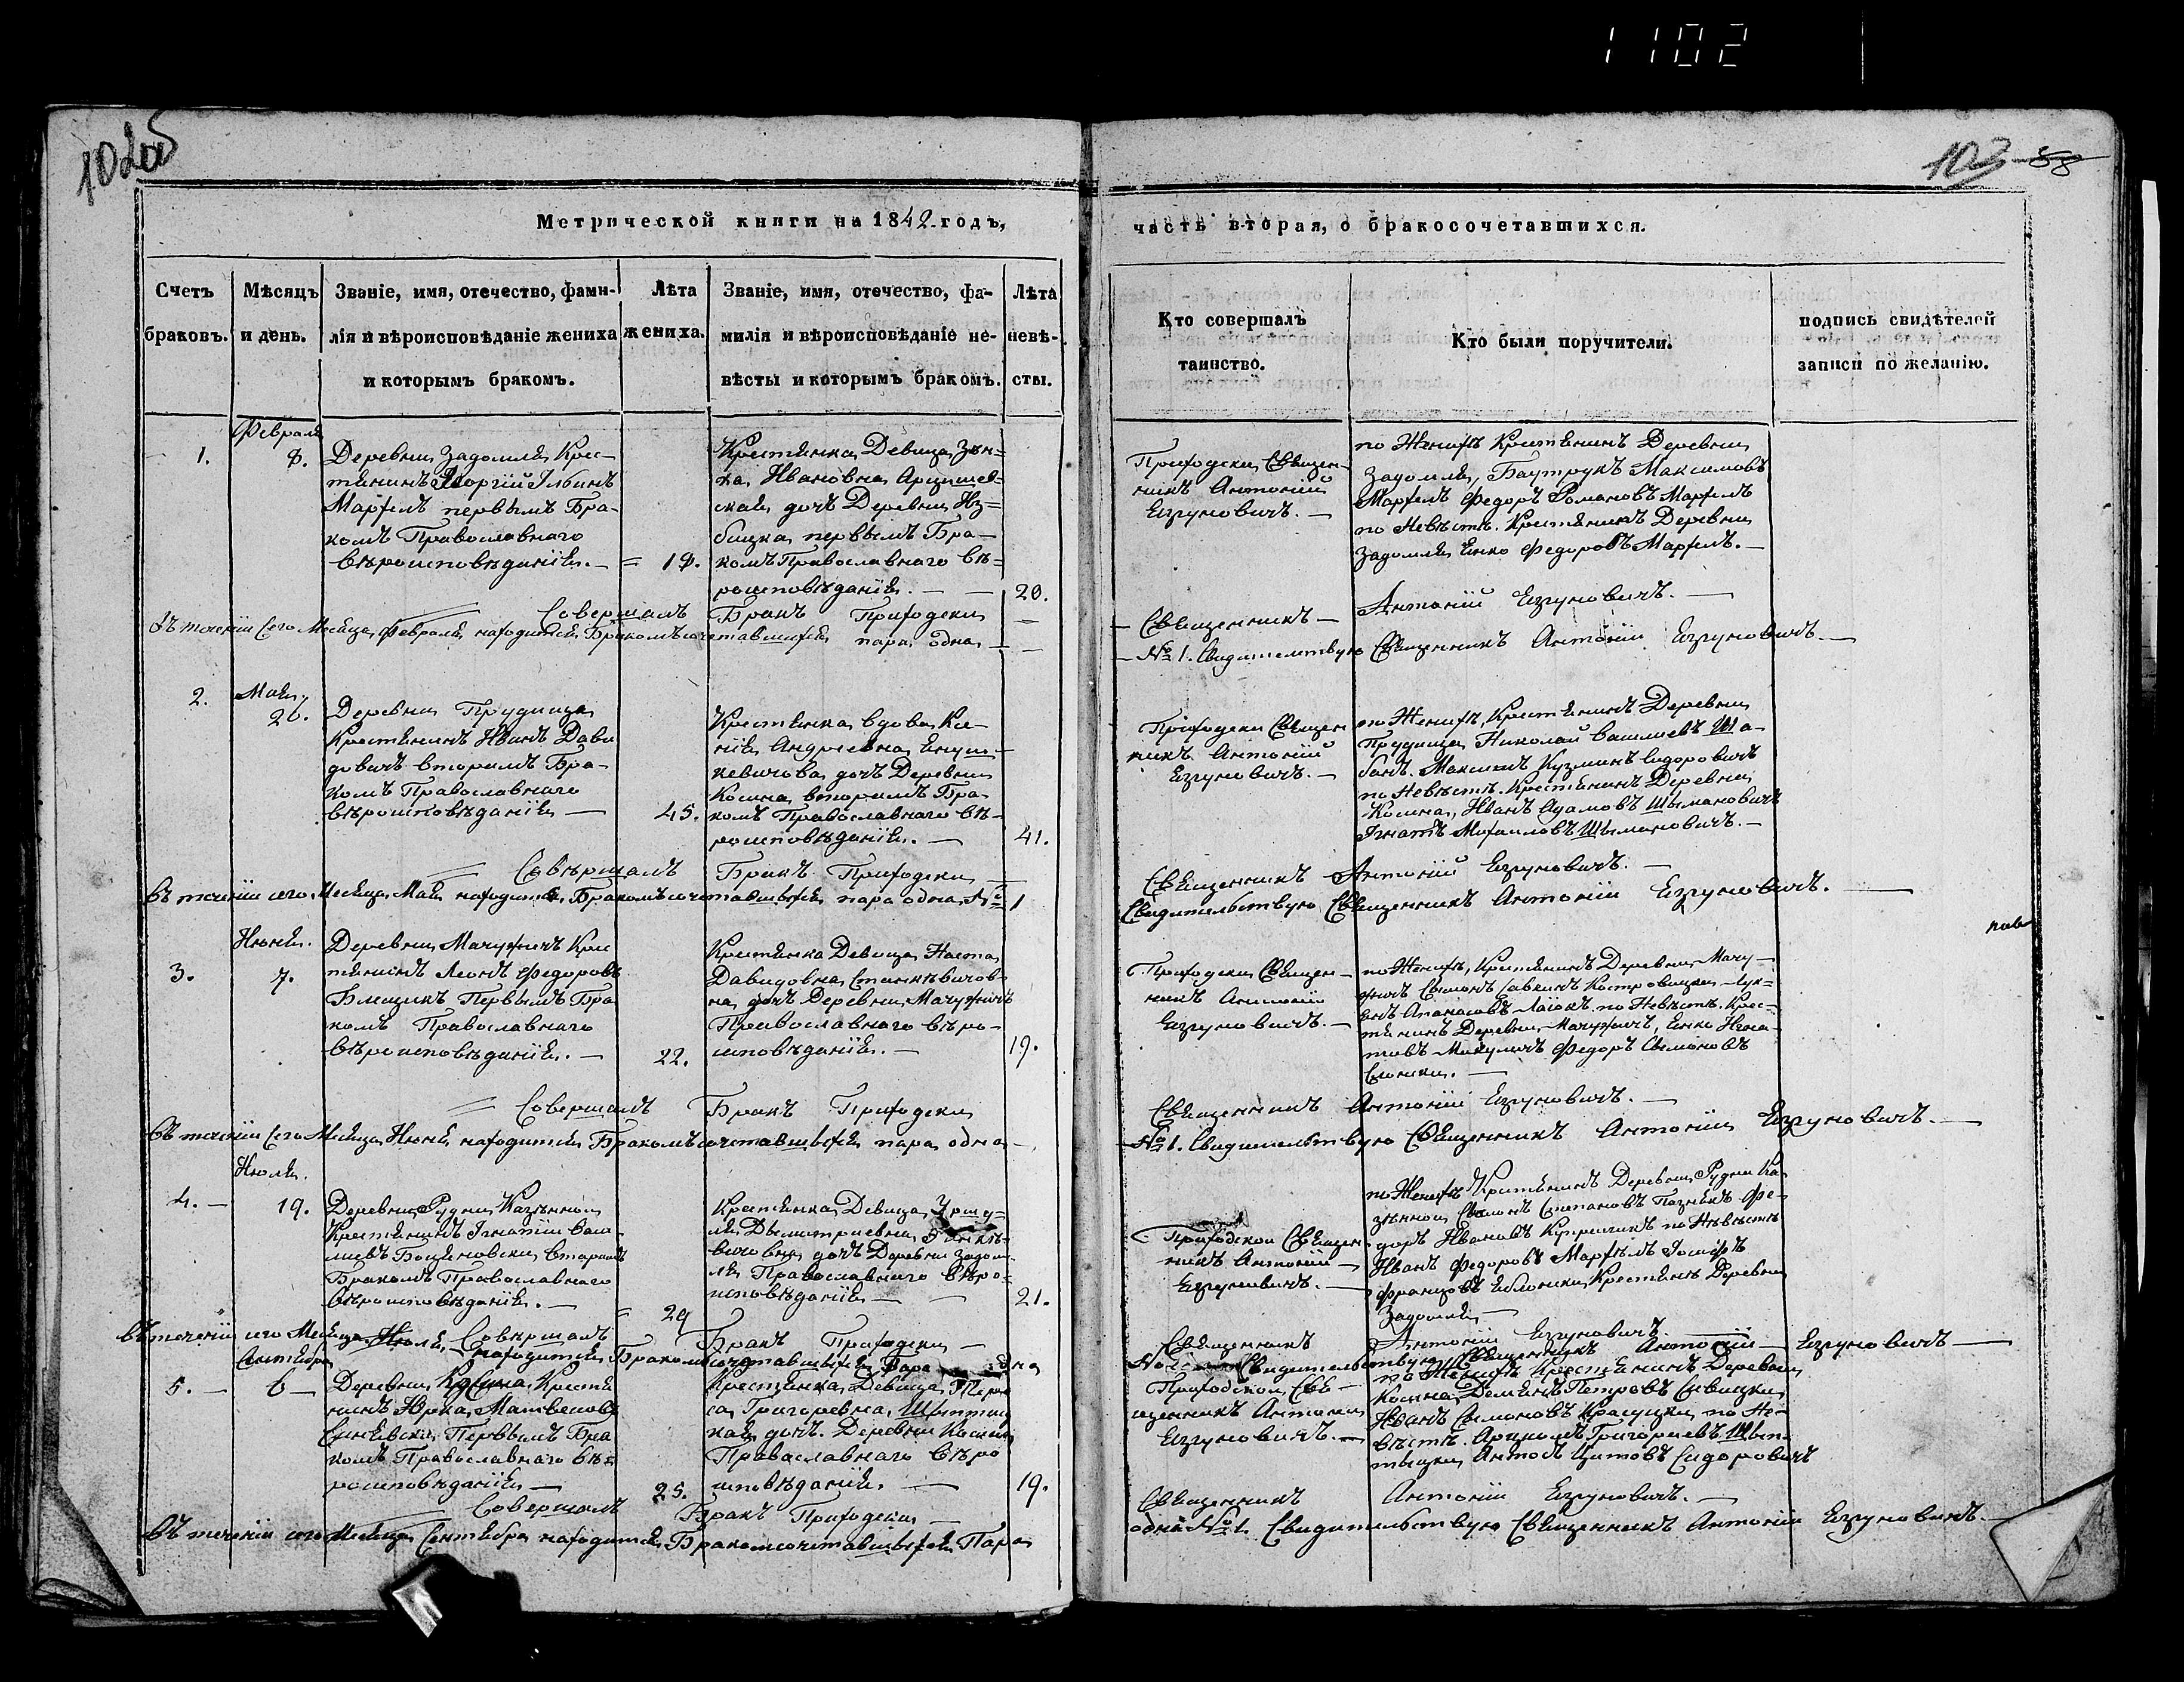 1102
102об
103 58
Метрической книги на 1842 годъ,
часть вторая, о бракосочетавшихся.
Счетъ браковъ.
Мѣсяцъ и день.
Званіе, имя, отечество, фами-
лія и вѣроисповѣданіе жениха
и которымъ бракомъ.
Лѣта
жениха.
Званіе, имя, отечество, фа-
милія и вѣроисповѣданіе не-
вѣсты и которымъ бракомъ.
Лѣта
невѣ-
сты.
Кто совершалъ
таинство.
Кто были поручители.
подпись свидѣтелей
записи по желанію.
1.
Февраля
8.
Деревни Задомля Крес-
тянинъ Георгій Ильинъ
Марфелъ первымъ Бра-
комъ Православнаго
вѣроисповѣданія. —
= 18.
Крестянка Девица Зѣн-
ка Ивановна Арцишев-
ская дочъ Деревни Из-
бицка первымъ Бра-
комъ Православнаго вѣ-
роисповѣданія. —
20.
Приходски Священ-
никъ Антоній
Езруновичъ. —
по Женихѣ Крестянинъ Деревни
Задомля, Баутрукъ Максимовъ
Марфелъ Федоръ Романовъ Марфелъ
по Невѣстѣ. Крестянинъ Деревни
Задомля Енко Федоровъ Марфелъ. —
Совершалъ Бракъ Приходски — Священникъ — Антоній Езруновичъ. —
Въ теченіи Сего Месяца Февраля находится Бракомъ сочетавшихся пара одна — № 1. Свидительствую Священникъ Антоній Езруновичъ —
2.
Мая
26.
Деревни Прудища
Крестянинъ Иванъ Дави
довичъ вторымъ Бра-
комъ Православнаго
вѣроисповѣданія —
45.
Крестянка вдова Ксе-
нія Андреевна Януш-
кевичова дочъ Деревни
Косина вторымъ Бра-
комъ Православнаго вѣ-
роисповѣданія. —
41.
Приходски Священ
никъ Антоній
Езруновичъ. —
по Женихѣ, Крестянинъ Деревни
Прудища Николай Василіевъ Ша-
банъ. Максимъ Кузминъ Сидоровичъ
по Невѣстѣ. Крестянинъ Деревни
Косина, Иванъ Адамовъ Шымановичъ
Игнатъ Михаиловъ Шымановичъ. —
Совѣршалъ Бракъ Приходски — Священникъ Антоній Езруновичъ. —
Въ теченіи сего Месяца Мая находится Бракомъ сочетавшыхся пара одна № 1 Свидительствую Священникъ Антоніи Езруновичъ. —
3.
Июня.
7.
Деревни Мачужичъ Крес
тянинъ Леонъ Федоровъ
Блищикъ Первымъ Бра
комъ Православнаго
вѣроисповѣданія. —
22.
Крестянка Девица Наста
Давидовна Станкѣвичов
на дочъ Деревни Мачужичъ
Православнаго вѣро-
исповѣданія. —
19.
Приходски Священ-
никъ Антоній
Езруновичъ. —
по Женихѣ, Крестянинъ Деревни Мачу-
жичъ Сымонъ Савкинъ Костровицки Лук-
янъ Апанасовъ Лаіокъ по Невѣстѣ. Крес-
тянинъ Деревни Мачужичъ, Енко Игна-
товъ Микуличъ Федоръ Сымоновъ
Совершалъ Бракъ Приходски Священникъ Антоніи Езруновичъ. —
Въ теченіи Сего Месяца Июня находится Бракомъ сочетавшыхся пара одна — № 1. Свидительствую Священникъ Антоніи Езруновичъ. —
4. —
Июля.
19.
Деревни Рудни Казѣнной
Крестянинъ Игнатіи Васи
лиевъ Боцяновски вторымъ
Бракомъ Православнаго
вѣроисповѣданія. —
= 29
Крестянка Девица Уршу-
ля Дымитриевна
вичовна дочъ Деревни Задом-
ля Православнаго вѣро-
исповѣданія — —
21.
Приходскои Священ-
никъ Антоній —
Езруновичъ. —
по Женихѣ Крестянинъ Деревни Рудни Ка
зѣннои Сымонъ Степановъ Пазнякъ Фе-
доръ Ивановъ Купрейчикъ по Невѣстѣ
Иванъ Федоровъ Марфѣлъ Іосифъ
Францовъ Яблонски Крестянъ Деревни
Задомля —
Совершалъ Бракъ Приходски — Священникъ Антоніи Езруновичъ.
Въ теченіи сего Месяца Июля находится Бракомъ сочетавшыхся пара одна № Свидительствую Священникъ Антоніи — Езруновичъ —
5. —
Сентября
6 —
Деревни Косина Крестя
нинъ Юрка Матвеиовъ
Синявски Первымъ Бра
комъ Православнаго вѣ-
роисповѣданія —
25.
Крестянка Девица Тере
са Григоревна Шыптиц
кая дочъ. Деревни Косина
Православнаго вѣро
исповѣданія. —
19.
Приходскои Свя-
щенникъ Антоніи
Езруновичъ. —
по Женихѣ Крестянинъ Деревни
Косина Демянъ Петровъ Савицки
Иванъ Сымоновъ Красуцки по Не-
вѣстѣ. Арцюмъ Григориевъ Шып-
тыцки Антонъ Цитовъ Сидоровичъ
Совершалъ Бракъ Приходски — Священникъ Антоніи Езруновичъ. —
Въ теченіи сего Месяца Сентября находится Бракомсочетавшыхся Пара одна № 1. Свидительствую Священникъ Антоніи Езруновичъ. —